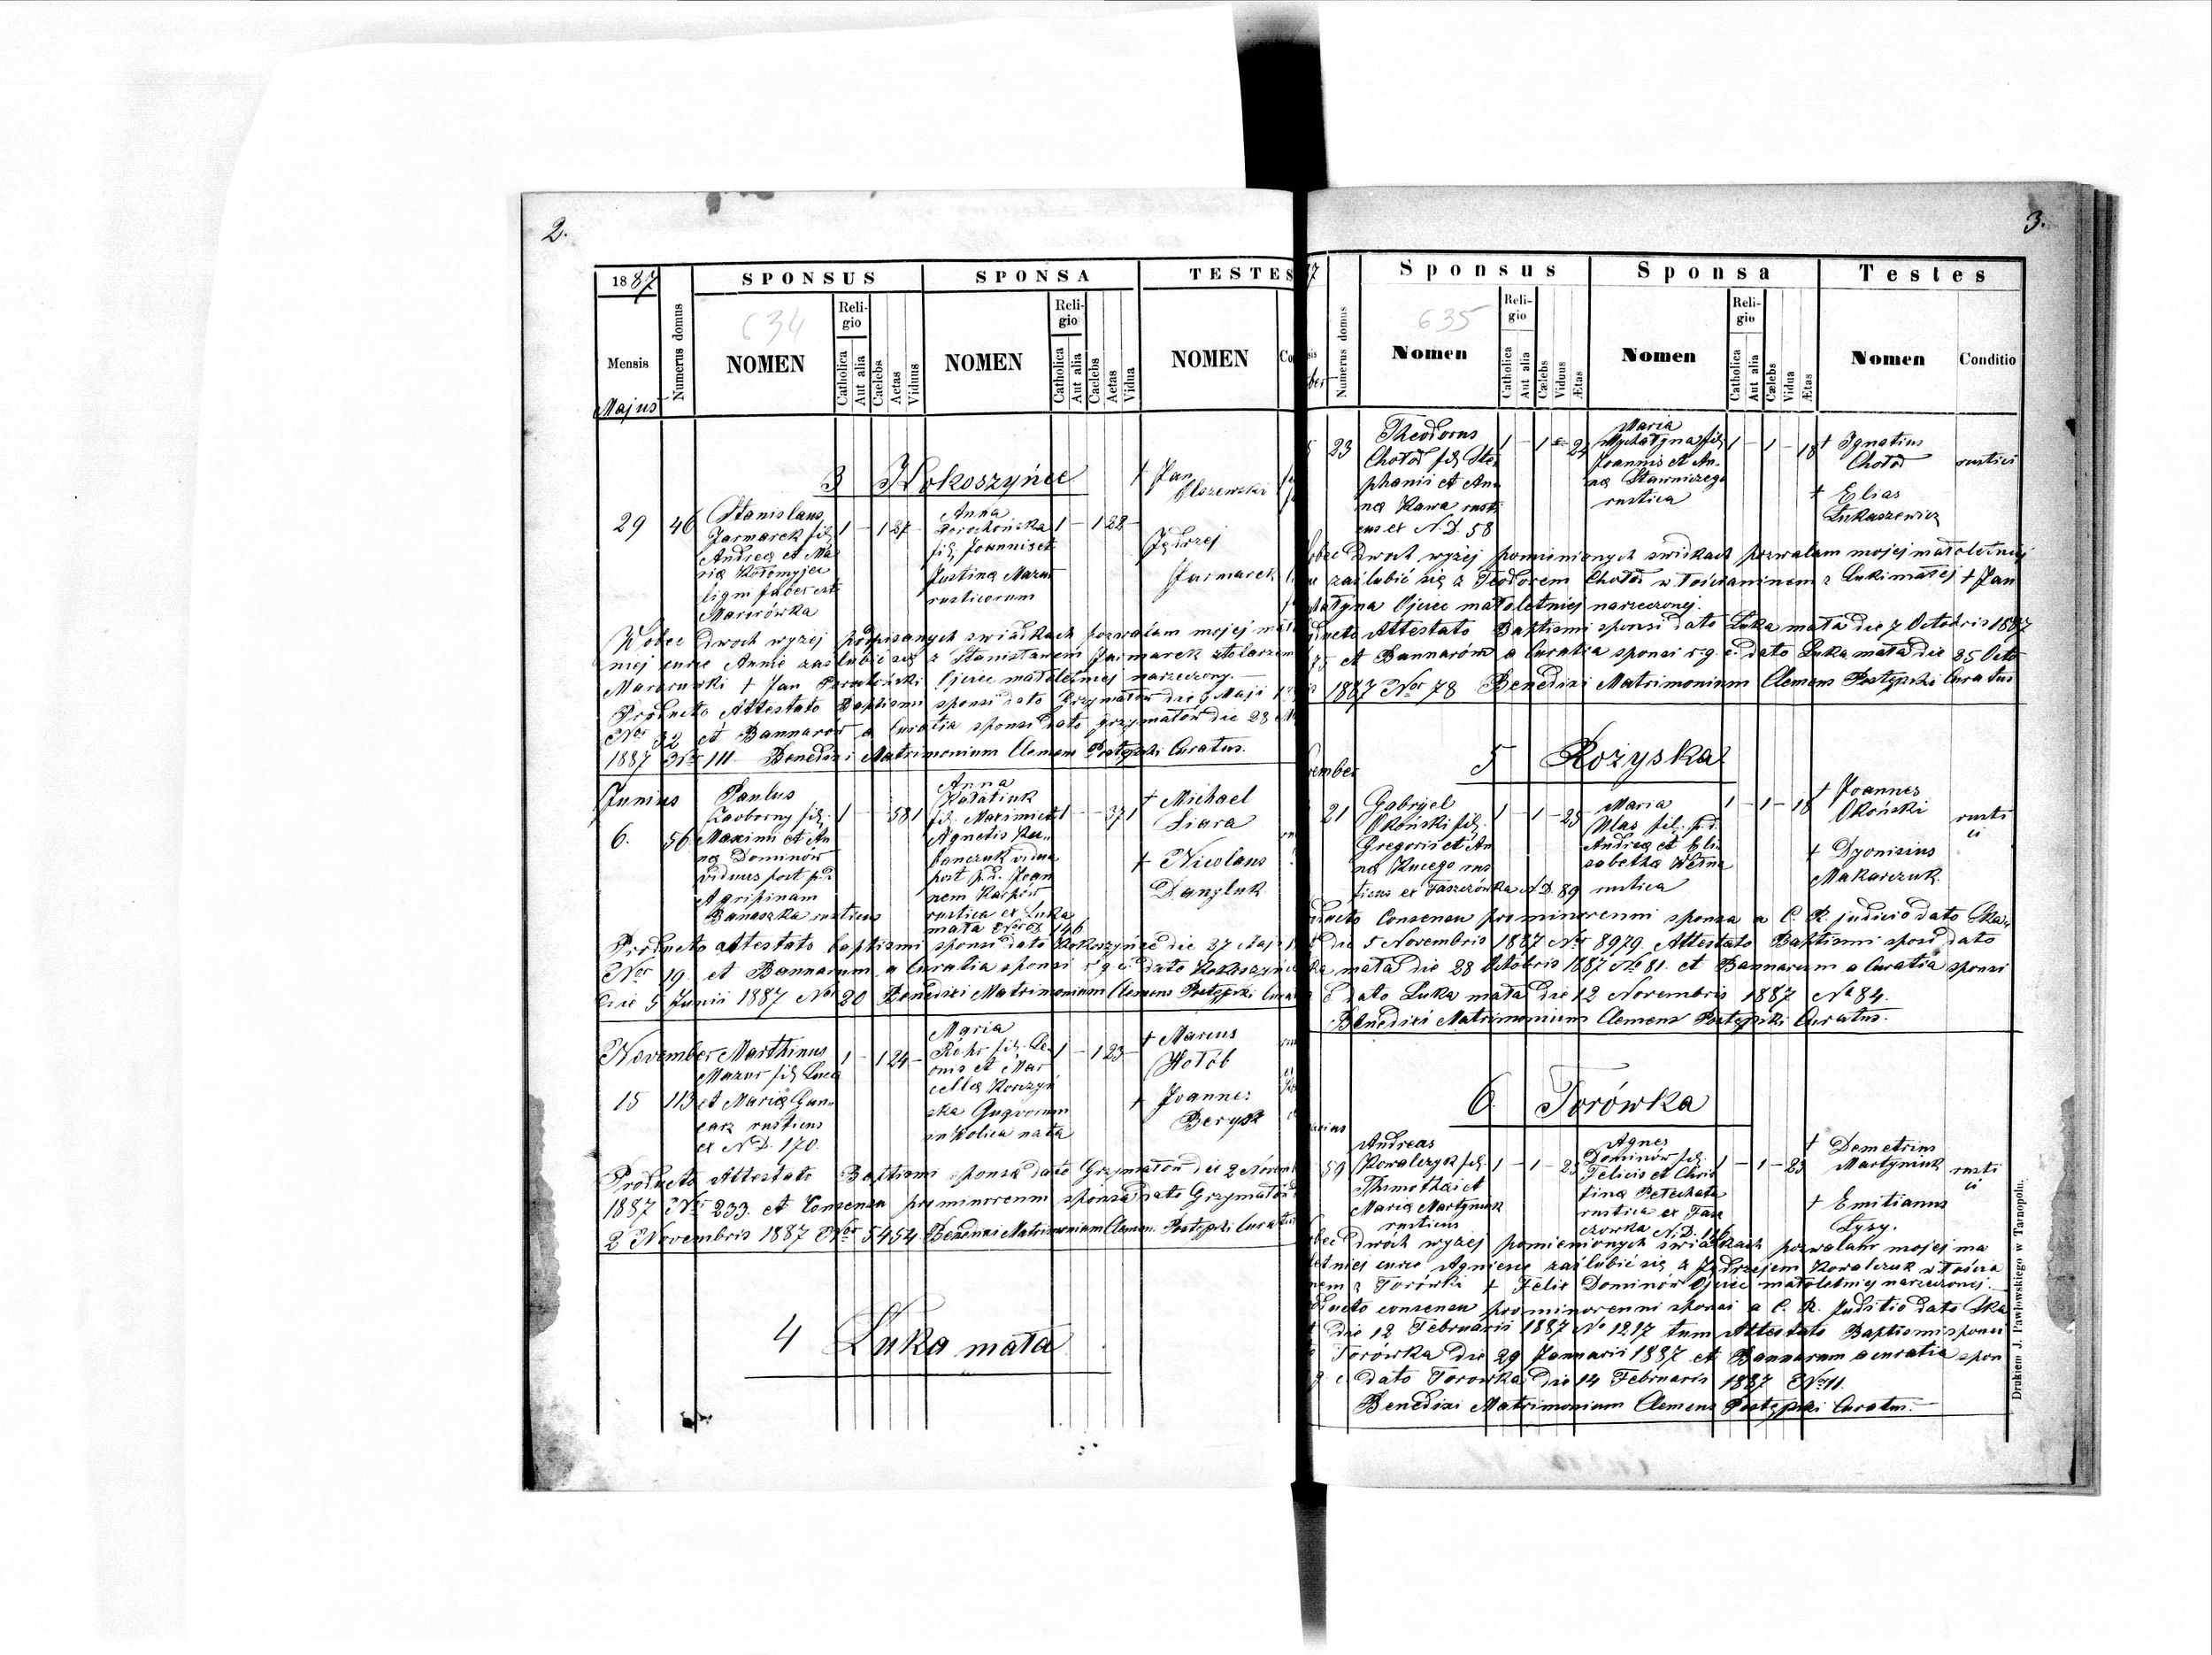 2.
1887 SPONSUS SPONSA TESTES
Mensis Numerus domus NOMEN Religio Catholica Aut alia Caelebs Aetas Viduus NOMEN Religio Catholica Aut alia Caelebs Aetas Vidua NOMEN
634
Majus
3 Kokoszyńce
29 46
Stanislaus
Jarmarek fil.
Andreą et Ma
rią Kołomyjec
ligni faber
1 - 1 27 -
Anna
fil. Joannis et
Justiną Mazur
rusticorum
1 - 1 22 -
† Jan
Olszewski
Jędrzej
Jarmarek
Wobec dwoch wyżej podpisanych swiadkach pozwalam mojej
niej curce Annie zaslubić się z Stanisławem Jarmarek stolarzem
† Jan Ojciec małoletniej narzeczony.
Producto Attestato Baptismi sponsi dato Grzymałów die 9 Maji
Nor 32 et Bannarom a Curatia sponsi dato Grzymałów die 28
1887 Nr 111 Benedixi Matrimonium Clemens Postępski Curatus.
Junius
6. 56
Paulus
Zaoborny fil.
Maximi et An
ną Dominów
viduus post p.d.
Agripinam
Banaszka rusticus
1 - 58 1
Anna
fil. Maximi et
Agnetis
vidua
post p.d. Joan
nem Karpów
rustica ex Luka
mała Nor D. 146
1 - - 37 1
† Michael
Siara
† Nicolaus
Danyluk
Producto attestato baptismi sponsi dato Kokoszyńce die 27 Maji
Nor 19. et Bannarum a Curatia sponsi r. g. c. dato Kokoszyńce
die 5 Junii 1887 Nor 20 Benedixi Matrimonium Clemens Postępski
November
15 113
Marthinus
Mazur fil. Lucą
et Marią Gan-
carz rusticus
ex N.D. 170.
1 - 1 24 -
Maria
Röhr fil. Le-
onis et Mar
cellą Korczyń
ska
in Kolica nata
1 - 1 23 -
† Marcus
Hołób
† Joannes
Beryk
Producto Attestato Baptismi sponsą dato Grzymałów die 2
1887 Nr 233. et Consensu prominorenni sponsą dato Grzymałów
2 Novembris 1887 Nor 5454 Benedixi Matrimonium Clemen. Postępski
4 Luka mała
3.
Sponsus Sponsa Testes
Numerus domus Nomen Religio Catholica Aut alia Cælebs Viduus Ætas Nomen Religio Catholica Aut alia Cælebs Vidua Ætas Nomen Conditio
635
23
Theodorus
Chołod fil. Ste
phanis et An
ną Kawa rusti
cus ex N.D. 58
1 - 1 - 24
Maria
Mychałyna fil.
Joannis et An-
ną Stawniczego
rustica
1 - 1 - 18
† Ignatius
Chołod
† Elias
Łukaszewicz
rustici
dwoch wyżej pomienionych swidkach pozwalam mojej małoletniej
zaślubić się z Teodorem Chołod włościaninem z Lukimałej † Jan
Ojciec małoletniej narzeczonej.
Attestato Baptismi sponsi dato Luka mała die 7 Octobris 1887
et Bannarom a Curatia sponsi r. g. c. dato Luka mała die 25 Octo
1887 Nor 78 Benedixi Matrimonium Clemens Postępski Curatus
5 Rożyska
21
Gabryel
Okoński fil.
Gregorii et An
ną Kucego rus
ticus ex Faszczówka N.D. 89
1 - 1 - 25
Maria
Ulas fil. p.d.
Andreą et Eli
sabethą Wełna
rustica
1 - 1 - 18
† Joannes
Okoński
† Dyonisius
Makarczuk.
rusti
ci
Consensu prominorenni sponsa a C. R. judicio dato
die 5 Novembris 1887 Nr 8979. Attestato Baptismi sposi dato
mała die 28 Octobris 1887 No 81. et Bannarum a Curatia sponsi
dato Luka mała die 12 Novembris 1887 No 84.
Benedixi Matrimonium Clemens Postępski Curatus.
6. Torówka
59
Andreas
Kowalczyk fil.
Thimothäi et
Marią Martyniuk
rusticus
1 - 1 - 23
Agnes
Dominów fil.
Felicis et Chris
tiną Peteshata
rustica ex Fasz
czowka N.D. 116
1 - 1 - 23
† Demetrius
Martyniuk
† Emilianus
Łysy.
rusti
ci
dwóch wyżej pomienionych świadkach pozwalam mojej ma
curce Agniesce zaślubić się z Jędrzejem Kowalczuk włościa
z Torówki † Felix Dominów Ojciec małoletniej narzeczonej.
consensu prominorenni sponsi a C. R. Juditio dato Ska
die 12 Februaris 1887 No 1217 tum Attestato Baptismi sponsi
Torówka die 29 Januaris 1887 et Bannarum a curatia spon
dato Torowka die 14 Februaris 1887 Nor 11.
Benedixi Matrimonium Clemens Postępski Curatus.
Drukiem J. Pawłowskiego w Tarnopolu.